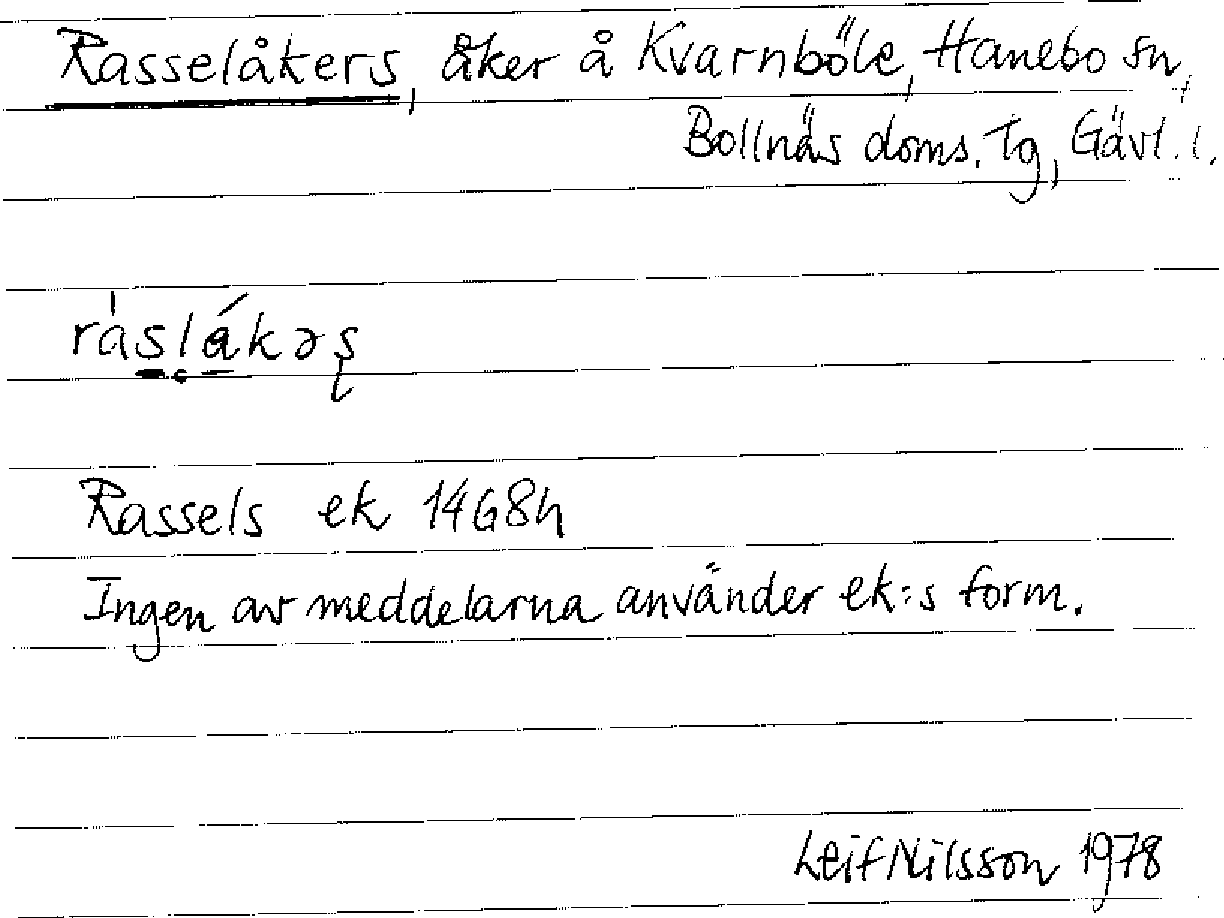 Rasselåkers, åker å Kvarnböle, Hanebo sn,
Bollnäs doms. Tg, Gävl. l.
ràslákəş
Rassels ek 14G8h
Ingen av meddelarna använder ek:s form.
Leif Nilsson 1978